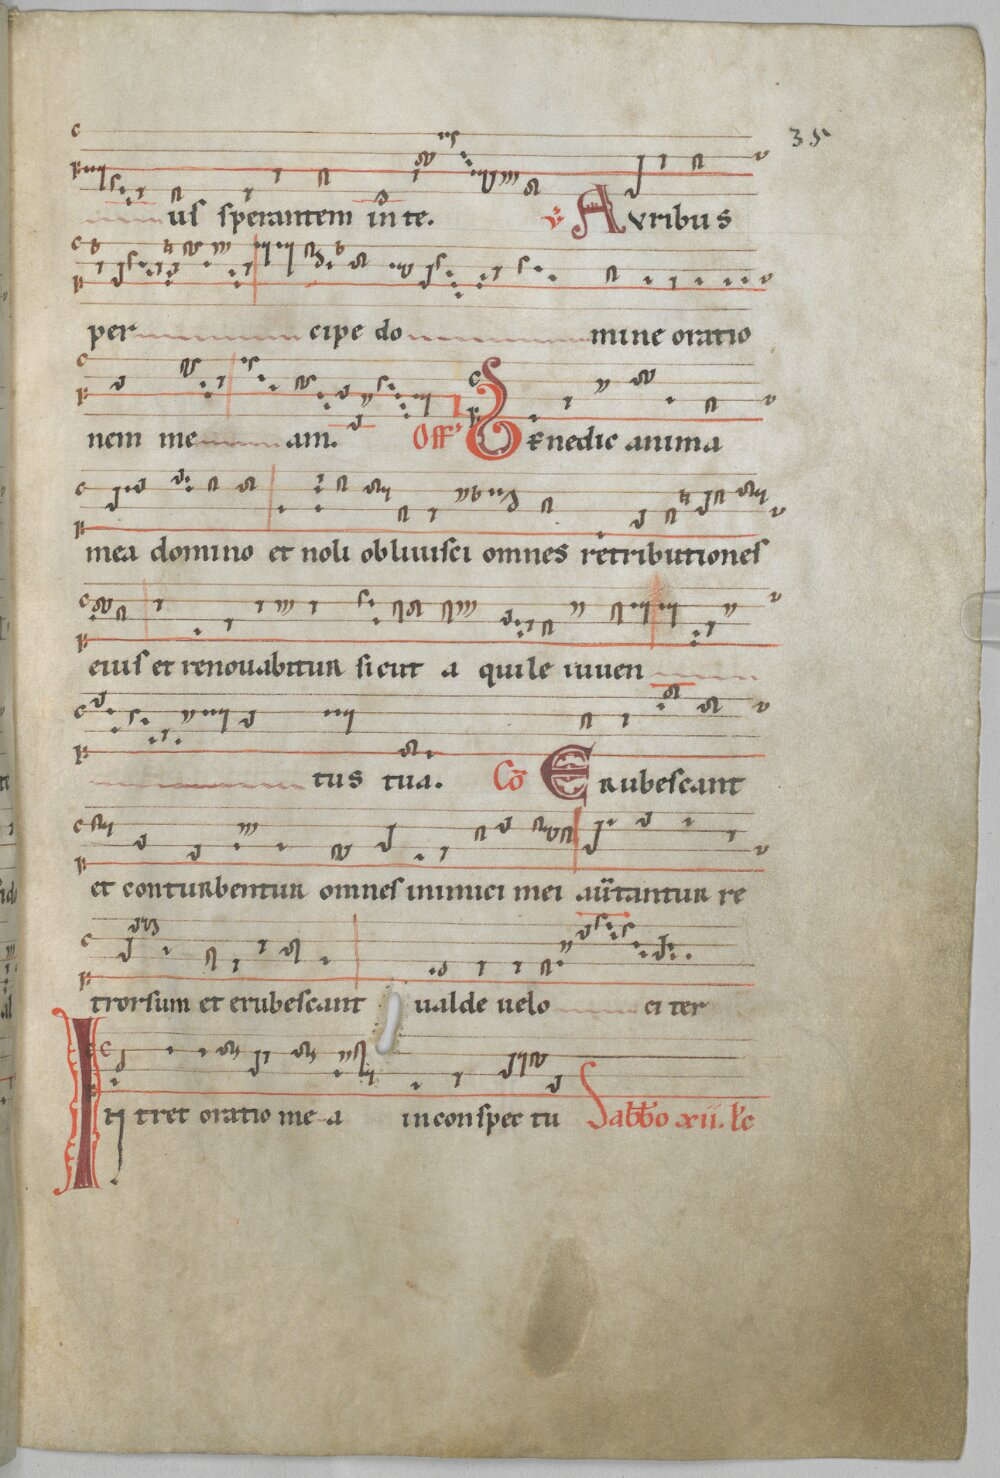 35
us sperantem in te. ℣ Auribus
per cipe do mine oratio
nem me am. Off Benedic anima
mea domino et noli obliuisci omnes retributiones
eius et renouabitur sicut a quile iuuen
tus tua. Cō Erubescant
et conturbentur omnes inimici mei auertantur re
trorsum et erubescant ualde uelo ci ter
Intret oratio me a in conspec tu Sabbō xii. lc